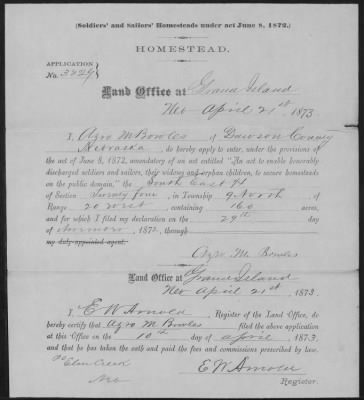 (Soldiers' and Sailors' Homesteads under act June 8, 1872.)
HOMESTEAD.
APPLICATION
No. 3429
Land Office at Grand Island
Neb April 21st 1873
I, Azro M Bowles of Dawson County
Nebraska, do hereby apply to enter, under the provisions of
the act of June 8, 1872, amendatory of an act entitled "An act to enable honorably
discharged soldiers and sailors, their widows and orphan children, to secure homesteads
on the public domain," the South East 1/4
of Section Twenty four, in Township 9 North of
Range 20 West, containing 160 acres,
and for which I filed my declaration on the 29th day
of, 1872, through
my duly appointed agent.
Azro M. Bowles
Land Office at Grand Island
Neb April 21st, 1873.
I, E W Arnold, Register of the Land Office, do
hereby certify that Azro M. Bowles filed the above application
at this Office on the 10th day of April, 1873,
and that he has taken the oath and paid the fees and commissions prescribed by law.
Elm Creek
Neb
E W Arnold
Register.